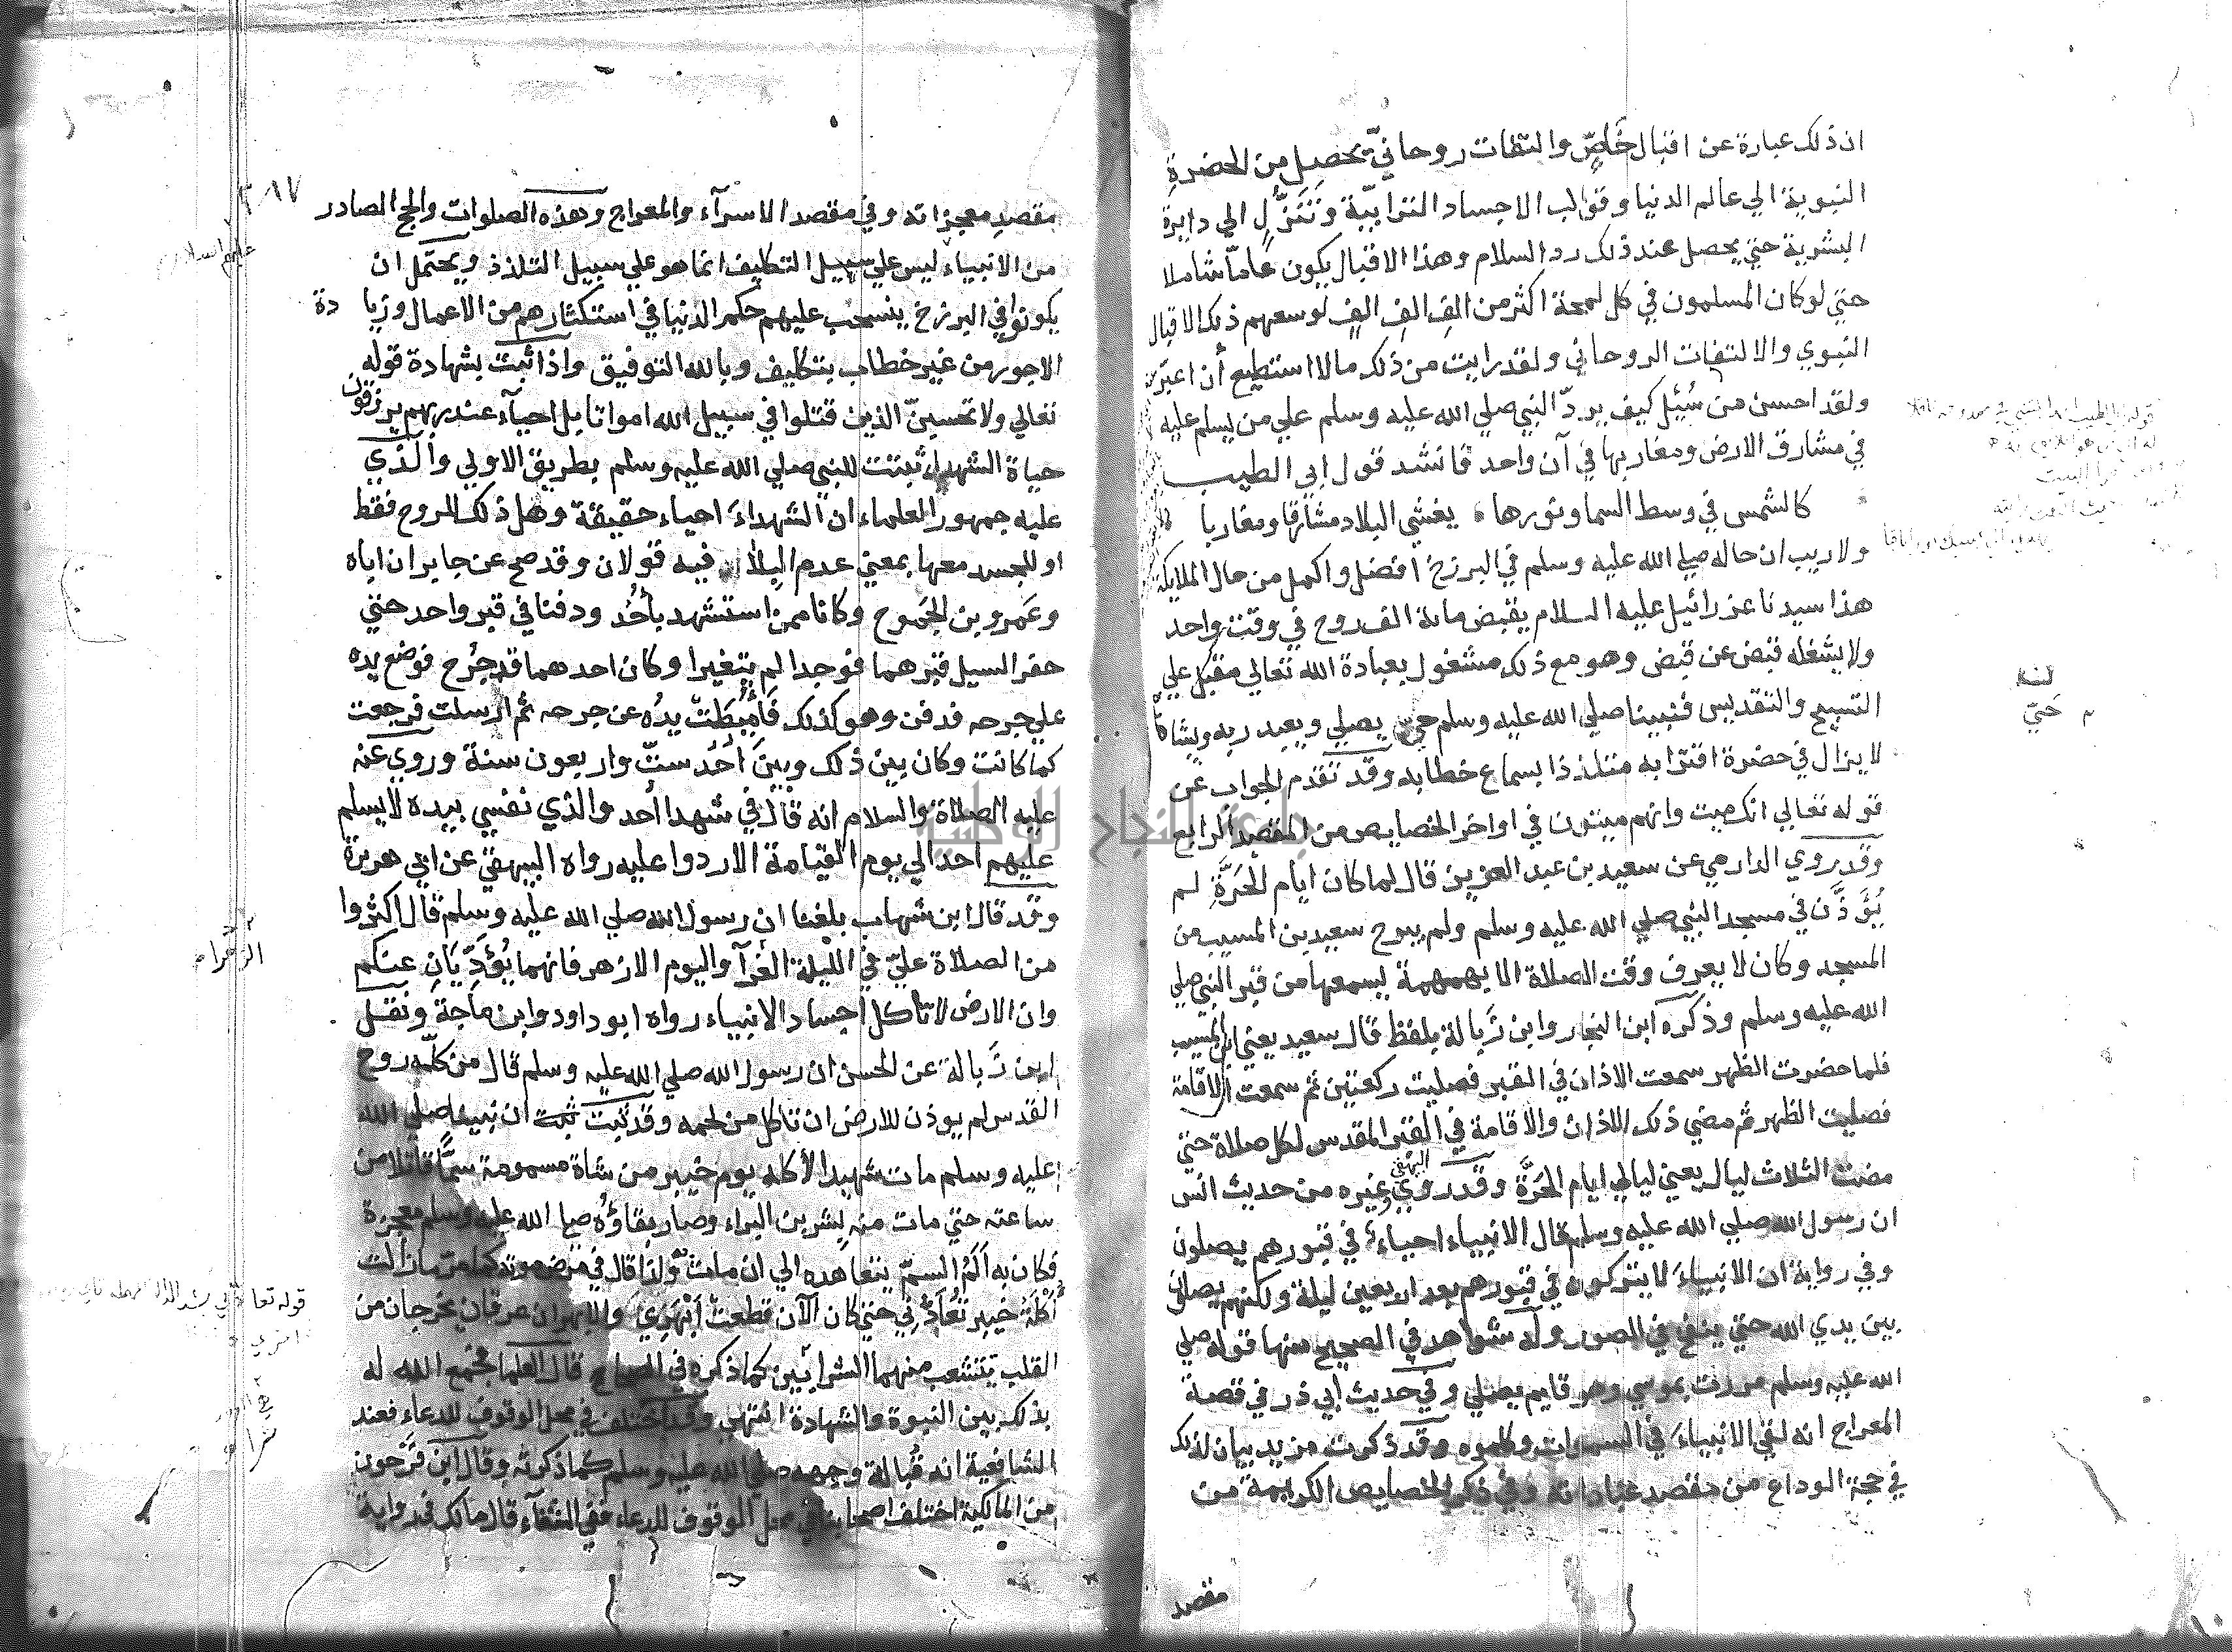 ان ذلك عبارة عن اقبال خاصّ والتفات روحانيّ يحصل من الحضرة
النبوية الي عالم الدنيا وقوالب الاجساد الترابيّة وتَنَزُّلٍ الي دايرة
البشرية حتي يحصل عند ذلك رد السلام وهذا الاقبال يكون عامّا شاملا
حتي لو كان المسلمون في كل لمحة اكثر من الفِ الفِ الفٍ لوسعهم ذلك الاقبال
النبوي والالتفات الروحاني ولقد رايت من ذلك مالا استطيع أن اعبّر عن
ولقد احسن من سُئِل كيف يردّ النبي صلي الله عليه وسلم علي من يسلم عليه
في مشارق الارض ومغاربها في آن واحد فانشد قول ابي الطيب
كالشمس في وسط السما ونورها يغشي البلاد مشارقا ومغاربا
ولا ريب ان حاله صلي الله عليه وسلم في البرزخ افضل واكمل من حال الملايكة
هذا سيدنا عزرائيل عليه السلام يقبض ماية الف روح في وقت واحد
ولا يشغله قبض عن قبض وهو مع ذلك مشغول بعبادة الله تعالي مقبل علي
التسبيح والتقديس فنبينا صلي الله عليه وسلم حي يصلي ويعبد ربه ويشاهده
لا يزال في حضرة اقترابه متلذذا بسماع خطابه وقد تقدم الجواب عن
قوله تعالي انك ميت وانهم ميتون في اواخر الخصايص من المقصد الرابع
وقد روي الدارمي عن سعيد بن عبد العزيز قال لما كان ايام الحَرَّةِ لم
يُؤَذَّن في مسجد النبي صلي الله عليه وسلم ولم يبرح سعيد بن المسيب من
المسجد وكان لا يعرف وقت الصلاة الا بهمهمة يسمعها من قبر النبي صلي
الله عليه وسلم وذكره ابن النجار وابن زَبالة بلفظ قال سعيد يعني ابن المسيب
فلما حضرت الظهر سمعت الاذان في القبر فصليت ركعتين ثم سمعت الاقامة
فصليت الظهر ثم مضي ذلك الاذان والاقامة في القبر المقدس لكل صلاة حتي
مضت الثلاث ليال يعني ليالي ايام الحَرَّة وقد روي البيهقي وغيره من حديث انس
ان رسول الله صلي الله عليه وسلم قال الانبياء احياءٌ في قبورهم يصلون
وفي رواية ان الانبياءَ لا يتركون في قبورهم بعد اربعين ليلة ولكنهم يصلون
بين يدي الله حتي ينفخ في الصور وله شواهد في الصحيح منها قوله صلي
الله عليه وسلم مررت بموسي وهو قايم يصلي وفي حديث ابي ذر في قصة
المعراج انه لقي الانبياءَ في السموات وكلموه وقد ذكرت مزيد بيان لذلك
في حجة الوداع من مقصد عباداته وفي ذكر الخصايص الكريمة من
مقصد
حَيّ
مقصدِ معجزاته وفي مقصد الاسرآء والمعراج وهذه الصلوات والحج الصادر
من الانبياء ليس علي سبيل التكليف انما هو علي سبيل التلذذ ويحتمل ان
يكونوا في البرزخ ينسحب عليهم حكم الدنيا في استكثارهم من الاعمال وزيادة
الاجور من غير خطاب بتكليف وبالله التوفيق واذا ثبت بشهادة قوله
تعالي ولا تحسبنّ الذين قتلوا في سبيل الله امواتا بل احيآء عند ربهم يرزقون
حياة الشهداء ثبتت للنبي صلي الله عليه وسلم بطريق الاولي والذي
عليه جمهور العلماء ان الشهداءَ احياء حقيقة وهل ذلك للروح فقط
او للجسد معها بمعني عدم البلاء فيه قولان وقد صح عن جابر ان اباه
وعَمرو بن الجَموح وكانا ممن استشهد بأُحُد ودفنا في قبر واحد حتي
حفر السيل قبرهما فوجدا لم يتغيرا وكان احدهما قد جُرح فوضع يده
علي جرحه فدفن وهو كذلك فَأُمِيطَت يدُه عن جرحه ثم ارسلت فرجعت
كما كانت وكان بين ذلك وبين أُحُد ستٌ واربعون سنة وروي عنه
عليه الصلاة والسلام انه قال في شهدا أُحد والذي نفسي بيده لا يسلم
عليهم احد الي يوم القيامة الا ردوا عليه رواه البيهقي عن ابي هريرة
وقد قال ابن شهاب بلغنا ان رسول الله صلي الله عليه وسلم قال اكثروا
من الصلاة عليّ في الليلة الغرآ واليوم الازهر فانهما يُؤَدِّيَانِ عنكم
وان الارض لا تأكل اجساد الانبياء رواه ابو داود وابن ماجة ونقل
ابن زَبالة عن الحسن ان رسول الله صلي الله عليه وسلم قال من كلّمه روح
القدس لم يوذن للارض ان تاكل من لحمه وقد ثبت ان نبينا صلي الله
عليه وسلم مات شهيدا لأكله يوم خيبر من شاة مسمومة سمًّا قاتلا من
ساعته حتي مات منه بشر بن البراء وصار بقاؤُه صلي الله عليه وسلم معجزة
فكان به اَلَمُ السمّ يتعاهده الي ان مات ولذا قال في مرض موته ما زالت
أُكْلَةُ خيبر تُعَادُّنِي حتي كان الآن قطعت أَبْهَرِي والابهران عرقان يخرجان من
القلب يتشعب منهما الشرايين كما ذكره في الصحاح قال العلما فجمع الله له
بذلك بين النبوة والشهادة انتهي وقد اختلف في محل الوقوف للدعاء فعند
الشافعية انه قُبالة وجهه صلي الله عليه وسلم كما ذكرته وقال ابن فَرْحون
من المالكية اختلف اصحابنا في محل الوقوف للدعاء ففي الشفآء قال مالك في رواية
عليهم السلام
الزهراء